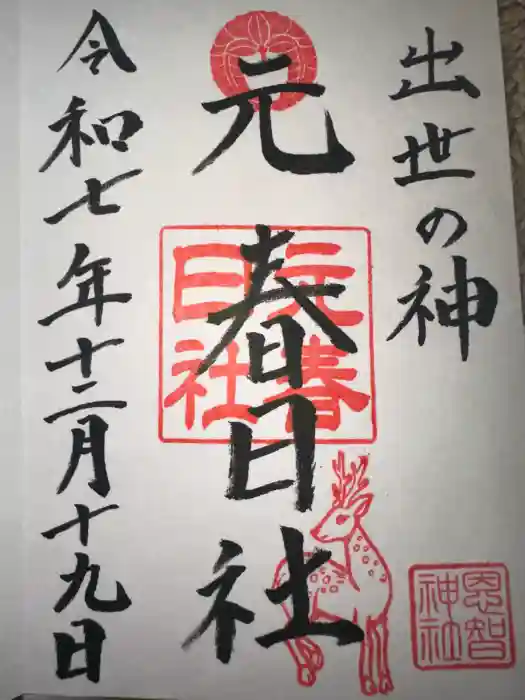 出世の神
元春日社
元春
日社
令和七年十二月十九日
恩智
神社